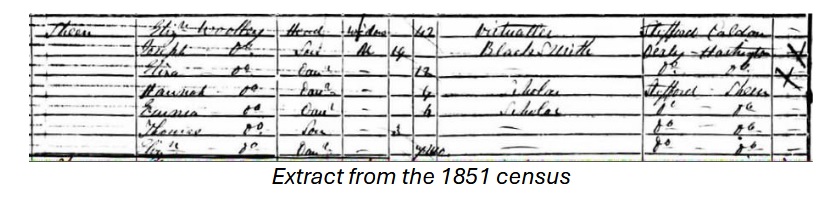 Sheen Elizth Woolley Head Widow 42 Victualler Stafford Caldon
Joseph Do Son 19 Black Smith Derby Hartington
Eliza Do Daur 12 Do Do
Hannah Do Daur Scholar Stafford Sheen
Emma Do Daur Scholar Do Do
Thomas Do Son 3 Do Do
Do Daur Do Do
Extract from the 1851 census